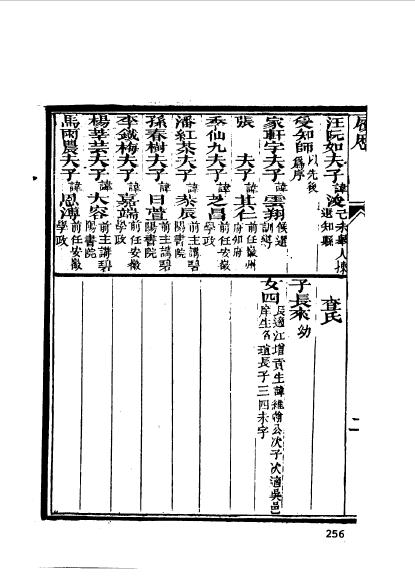 履歷
汪阮如夫子諱 己未舉人揀選知縣
受知師以先後為序
家軒宇夫子諱雲翔候選訓導
張 夫子諱其仁前任徽州府知府
季仙九夫子諱芝昌前任安徽學政
潘紅茶夫子諱恭辰前主講碧陽書院
孫春樹夫子諱日萱前主講碧陽書院
李鐵梅夫子諱嘉端前任安徽學政
楊莘芸夫子諱大容前主講碧陽書院
馬雨農夫子諱恩溥前任安徽學政
查氏
子長來幼
女四長適江增貢生諱維翰公次子次適吳邑庠生名 長子三四未字
二
256